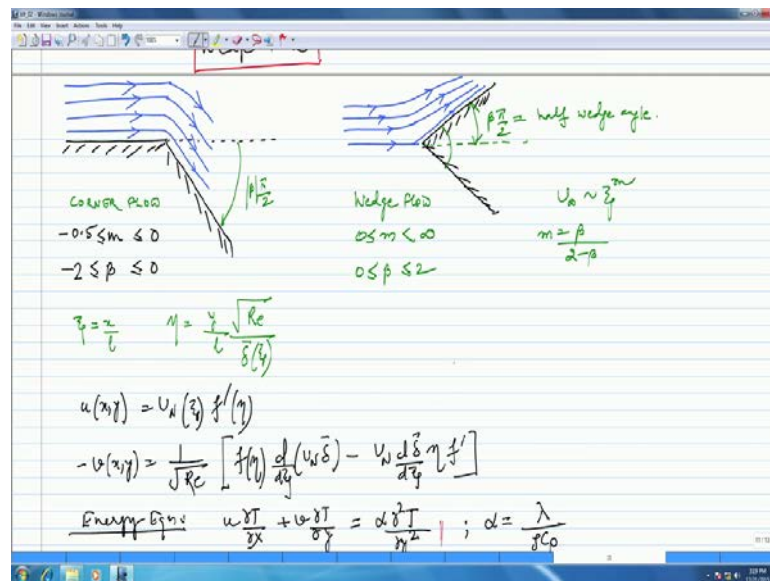 File Edit View Insert Actions Tools Help
|β|π/2
βπ/2 = half wedge angle.
CORNER FLOW
Wedge Flow
U_N ~ ξ^m
-0.5 ≤ m ≤ 0
0 ≤ m < ∞
m = β/(2-β)
-2 ≤ β ≤ 0
0 ≤ β ≤ 2
ξ = x/l
η = y/l √Re/δ̄(ξ)
u(x,y) = U_N(ξ) f'(η)
-v(x,y) = 1/√Re [f(η) d/dξ (U_N δ̄) - U_N dδ̄/dξ η f']
Energy Eqn: u ∂T/∂x + v ∂T/∂y = α ∂²T/∂y² ; α = λ/ρCp